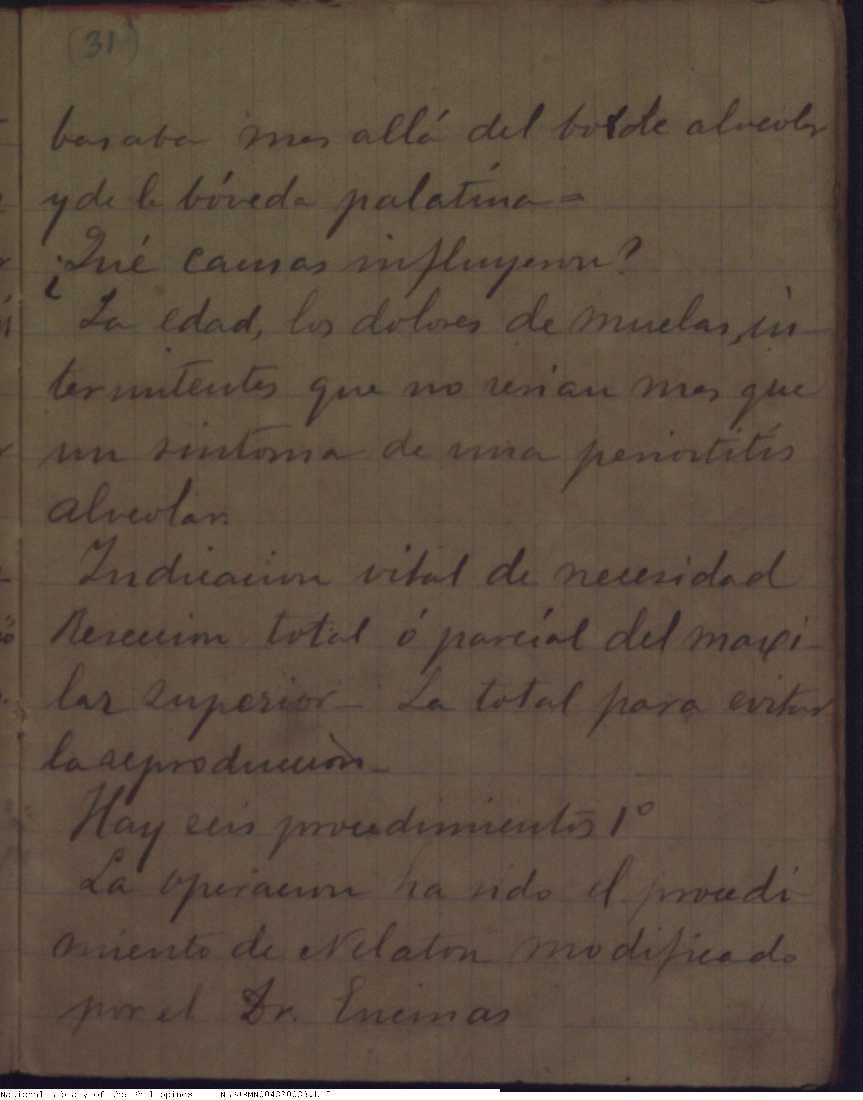 (31)
basaba mas allá del borde alveolar
y de la bóveda palatina =
¿Qué causas influyeron?
La edad, los dolores de muelas, in-
termitentes que no serian mas que
un sintoma de una periostitis
alveolar.
Indicacion vital de necesidad
Reseccion total ó parcial del maxi-
lar superior - La total para evitar
la reproducción -
Hay seis procedimientos 1º
La operacion ha sido el procedi
miento de Nelaton modificado
por el Dr. Encinas
National Library of the Philippines